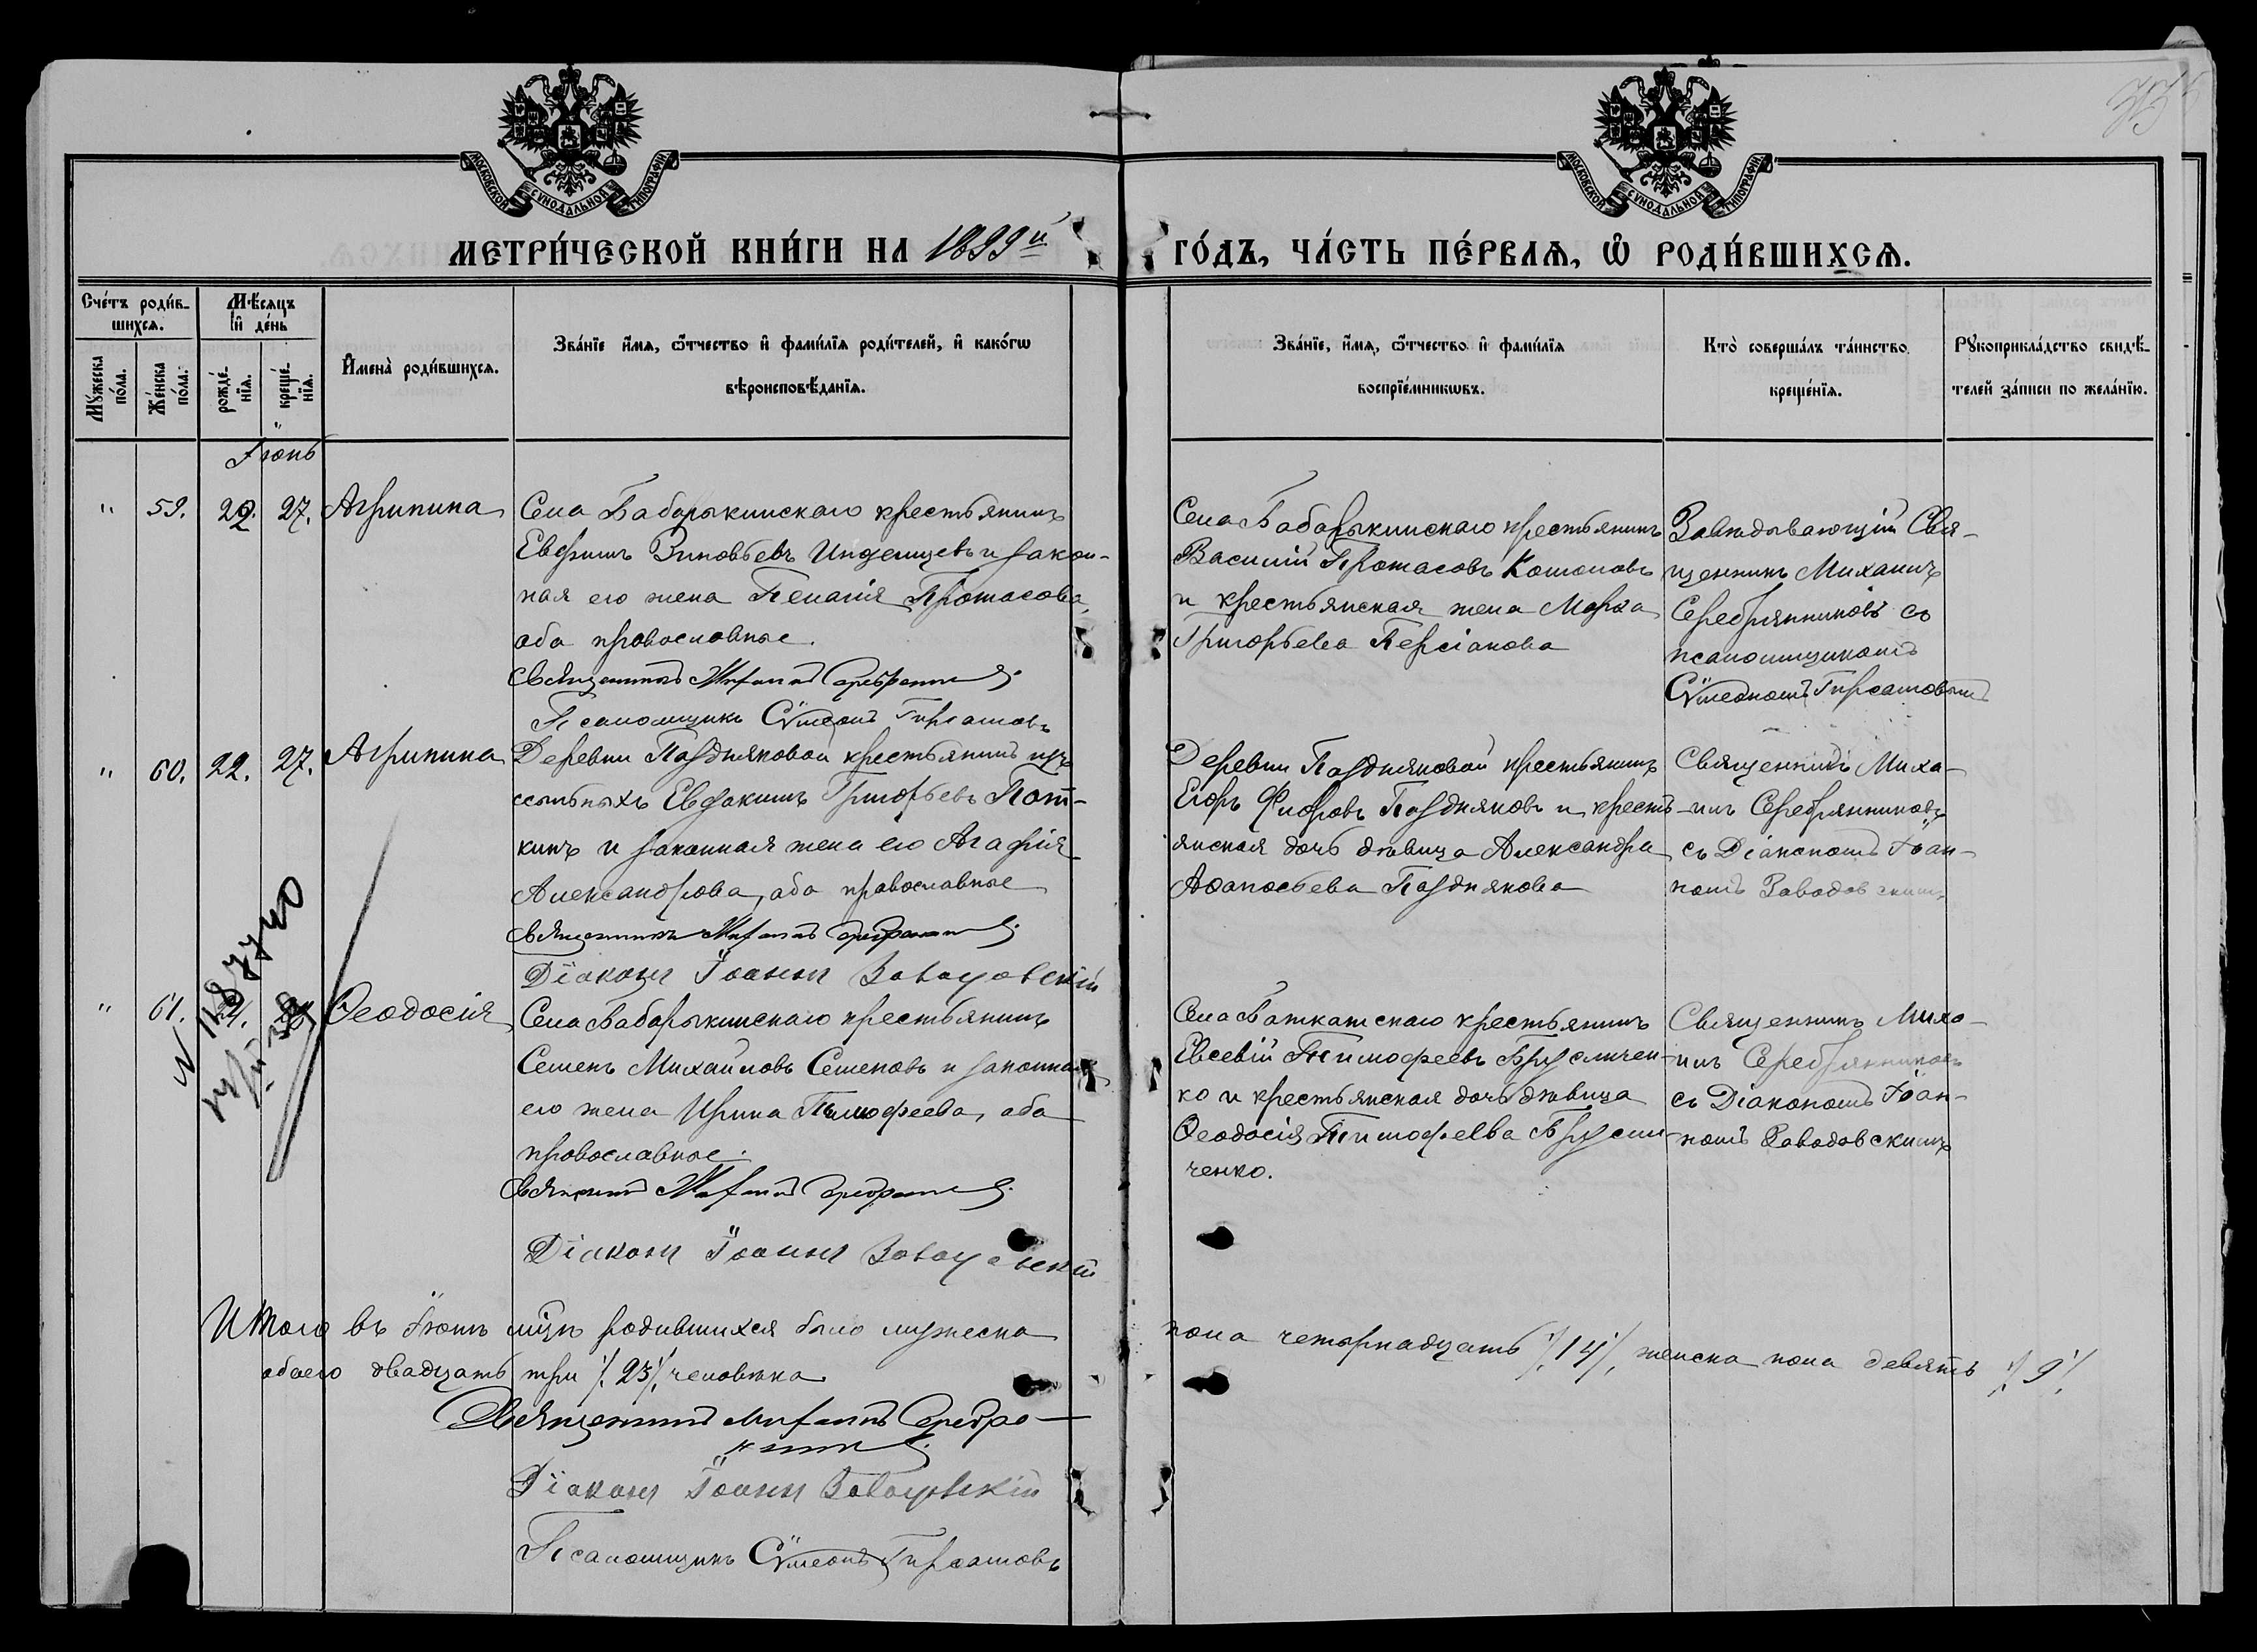 МОСКОВСКОЙ СУНОДАЛЬНОЙ ТИПОГРАФІИ
МОСКОВСКОЙ СУНОДАЛЬНОЙ ТИПОГРАФІИ
МЕТРИ́ЧЕСКОЙ КНИ́ГИ НА 1899й ГО́ДЪ, ЧА́СТЬ ПЕ́РВАѦ, Ѡ РОДИ́ВШИХСѦ.
Сче́тъ роди́в-
шихсѧ.
Мѣ́сѧцъ
и де́нь
Мꙋ́жеска по́ла.
Же́нска по́ла.
рожде́-
нїѧ.
креще́-
нїѧ.
Имена̀ роди́вшихсѧ.
Зва́нїе и́мѧ, ѻ́тчество и фами́лїѧ роди́телей, и како́гѡ
вѣроисповѣ́данїѧ.
Зва́нїе, и́мѧ, ѻ́тчество и фами́лїѧ
воспрїе́мникѡвъ.
Кто̀ соверша́лъ та́инство
креще́нїѧ.
Рꙋкоприкла́дство свидѣ́-
телей за́писи по жела́нїю.
Іюнь
" 59. 22. 27. Агрипина
Села Бабарыкинскаго крестьянинъ
Евфимъ Зиновьевъ Индемцевъ и закон-
ная его жена Пелагія Протасова,
оба православные.
Священникъ Михаилъ Серебрянниковъ
Псаломщикъ Сѵмеонъ Гирсамовъ
Села Бабарыкинскаго крестьянинъ
Василій Протасовъ Котомовъ
и крестьянская жена Марѳа
Григорьева Персіанова
Завѣдывающій Свя-
щенникъ Михаилъ
Серебрянниковъ съ
псаломщикомъ
Сѵмеономъ Гирсамовымъ
" 60. 22. 27. Агрипина
Деревни Поздняковой крестьянинъ изъ
ссыльныхъ Евдокимъ Григорьевъ Пот-
кинъ и законная жена его Агафія
Александрова, оба православные
Священникъ Михаилъ Серебрянниковъ
Діаконъ Іоаннъ Заводовскій
Деревни Поздняковой крестьянинъ
Егоръ Флоровъ Поздняковъ и кресть-
янская дочь дѣвица Александра
Аѳанасьева Позднякова
Священникъ Миха-
илъ Серебрянниковъ
съ Діакономъ Іоан-
номъ Заводовскимъ
" 61. Ѳеодосія
Села Бабарыкинскаго крестьянинъ
Семенъ Михайловъ Семеновъ и законная
его жена Ирина Тимофеева, оба
православные.
Священникъ Михаилъ Серебрянниковъ
Діаконъ Іоаннъ Заводовскій
Села Баткатскаго крестьянинъ
Евсевій Тимофеевъ
ко и крестьянская дочь дѣвица
Ѳеодосія Тимофеева
ченко.
Священникъ Миха-
илъ Серебрянниковъ
съ Діакономъ Іоан-
номъ Заводовскимъ
Итого въ Іюнѣ мцѣ родившихся было мужеска пола четырнадцать /14/, женска пола девять /9/
обоего двадцать три /23/ человѣка
Священникъ Михаилъ Серебрян-
никовъ
Діаконъ Іоаннъ Заводовскій
Псаломщикъ Сѵмеонъ Гирсамовъ